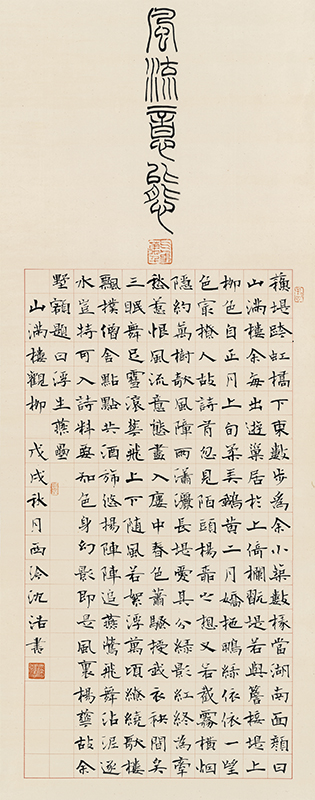 風流意態
蘇堤跨虹橋下東數步為余小築數椽當湖南面顏曰
山滿樓余每出遊巢居於上倚欄翫堤若與簷接堤上
柳色自正月上旬柔弄鵝黃二月嬌拖鴨綠依依一望
色最撩人故詩有忽見陌頭楊柳之想又若截霧橫烟
隱約萬樹欹風障雨瀟灑長堤愛其分綠影紅終為牽
愁惹恨風流意態盡入樓中春色蕭騷授我衣袂間矣
三眠舞足雪滾花飛上下隨風若絮浮萬頃繚繞歌樓
飄撲僧舍點點共酒旆悠揚陣陣追燕鶯飛舞沾泥逐
水豈特可入詩料要知色身幻影即是風裏楊花故余
墅額題曰浮生燕壘
山滿樓觀柳 戊戌秋月西泠沈浩書